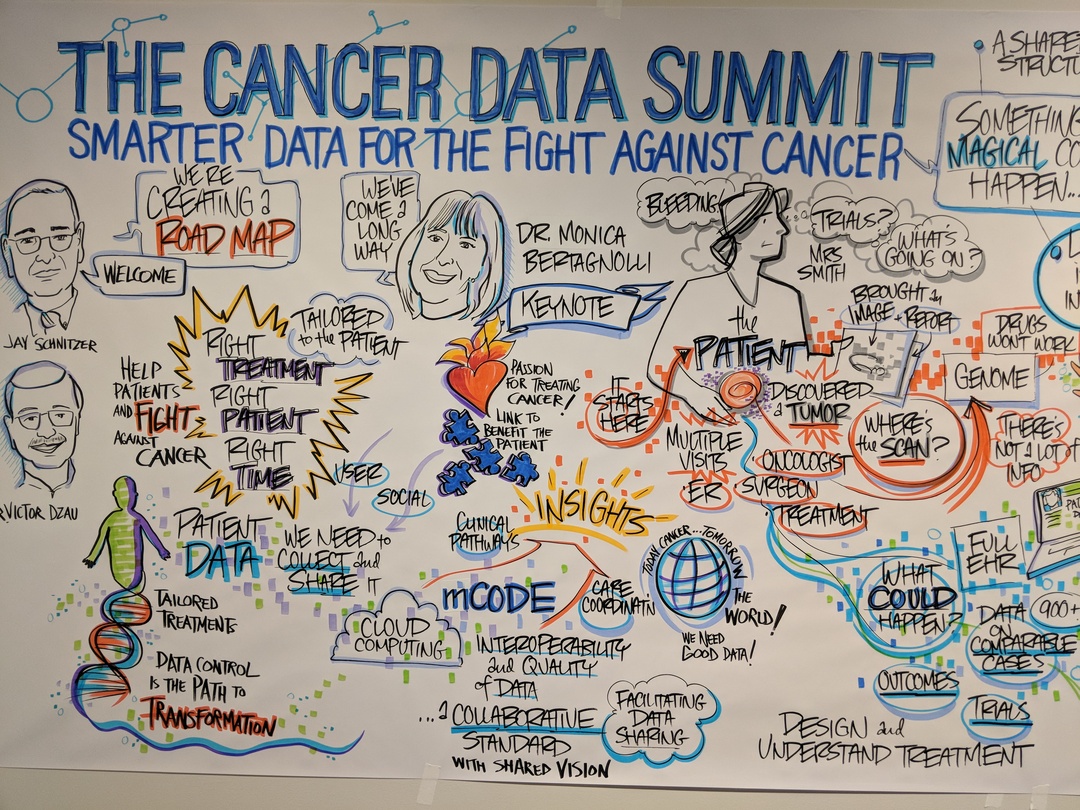 THE CANCER DATA SUMMIT
SMARTER DATA FOR THE FIGHT AGAINST CANCER
A SHARED
STRUCTU
SOMETHING
MAGICAL CO
HAPPEN...
WE'RE
CREATING a
ROAD MAP
WELCOME
JAY SCHNITZER
WE'VE
COME a
LONG
WAY
DR. MONICA
BERTAGNOLLI
KEYNOTE
BLEEDING!
TRIALS?
WHAT'S
GOING ON?
MRS
SMITH
the
PATIENT
BROUGHT in
IMAGE + REPORT
DRUGS
WON'T WORK
GENOME
HELP
PATIENTS
AND FIGHT
AGAINST
CANCER
RIGHT
TREATMENT
RIGHT
PATIENT
RIGHT
TIME
TAILORED
to the PATIENT
VICTOR DZAU
PASSION
FOR TREATING
CANCER!
LINK TO
BENEFIT THE
PATIENT
IT
STARTS
HERE
DISCOVERED
a TUMOR
WHERE'S
the SCAN?
THERE'S
NOT A LOT of
INFO
MULTIPLE
VISITS
ER
ONCOLOGIST
SURGEON
TREATMENT
USER
SOCIAL
PATIENT
DATA
WE NEED to
COLLECT and
SHARE IT
INSIGHTS
CLINICAL
PATHWAYS
mCODE
CARE
COORDINATN
TODAY CANCER...TOMORROW
THE
WORLD!
WE NEED
GOOD DATA!
FULL
EHR
WHAT
COULD
HAPPEN?
900+
DATA
ON
COMPARABLE
CASES
OUTCOMES
TRIALS
TAILORED
TREATMENTS
DATA CONTROL
IS THE PATH TO
TRANSFORMATION
CLOUD
COMPUTING
INTEROPERABILITY
and QUALITY
of DATA
...a COLLABORATIVE
STANDARD
WITH SHARED VISION
FACILITATING
DATA
SHARING
DESIGN and
UNDERSTAND TREATMENT